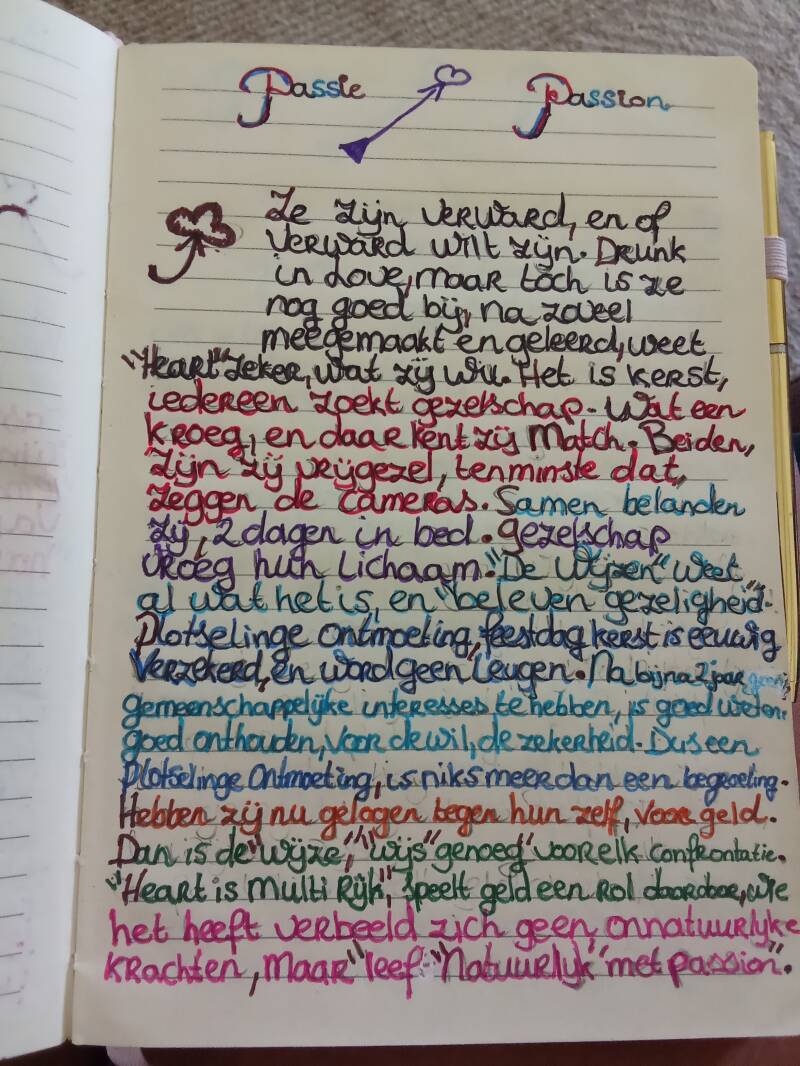 Passie Passion
Ze zijn verward, en of
verward wilt zijn. Drunk
in Love, maar toch is ze
nog goed bij, na zoveel
meegemaakt en geleerd, weet
"Heart" zeker, wat zij wil. Het is kerst,
iedereen zoekt gezelschap. Wat een
kroeg, en daar kent zij Match. Beiden,
zijn zij vrijgezel, tenminste dat,
zeggen de cameras. Samen belanden
zij, 2 dagen in bed. gezelschap
vroeg hun lichaam. "De Wijzen" weet
al wat het is, en "beleven gezeligheid".
Plotselinge ontmoeting, feestdag kerst is eeuwig
verzekerd, en word geen leugen. Na bijna 2 jaar
gemeenschappelijke interesses te hebben, is goed weten.
goed onthouden, voor de wil, de zekerheid. Dus een
plotselinge ontmoeting, is niks meer dan een begroeting.
Hebben zij nu gelogen tegen hun zelf, voor geld.
Dan is de "wijze", "wijs" genoeg" voor elk confrontatie.
"Heart is multi Rijk", speelt geld een rol daardoor, wie
het heeft verbeeld zich geen onnatuurlijke
krachten, maar "leef" "Natuurlijk" met passion".